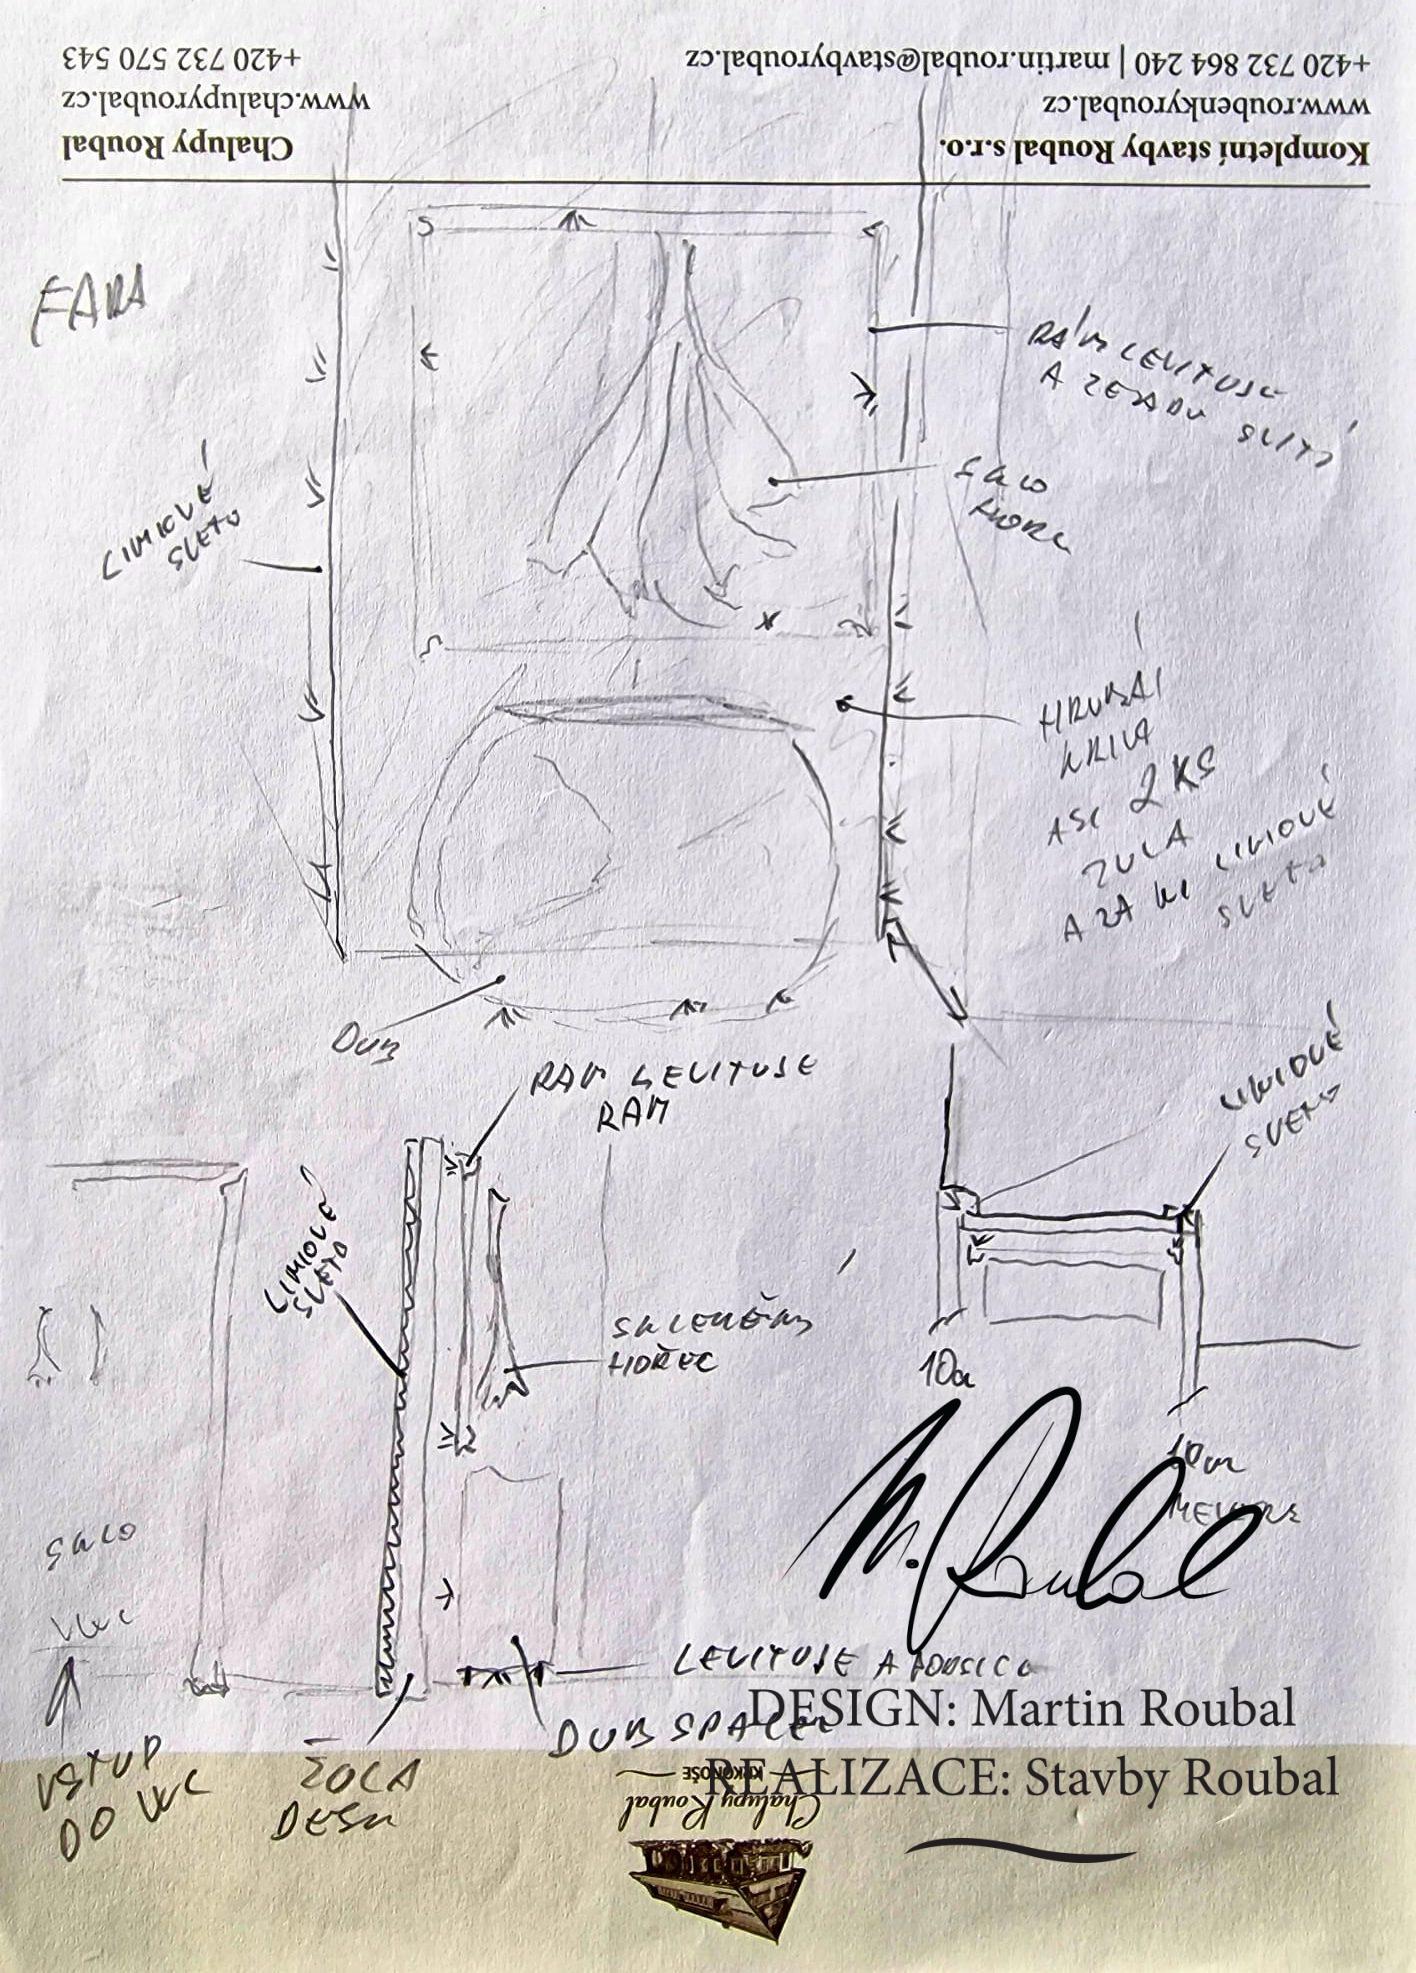 +420 732 570 543
www.chalupyroubal.cz
Chalupy Roubal
+420 732 864 240 | martin.roubal@stavbyroubal.cz
www.roubenkyroubal.cz
Kompletní stavby Roubal s.r.o.
FARA
RÁM LEVITUJE
A ZEZADU SVÍTÍ
SKLO
HOŘEC
LINIOVÉ
SVĚTO
HRUBÁ
KRIVÁ
ASI 2 KS
ŽULA
A ZA NI LINIOVÉ
SVĚTO
DUB
RAM LEVITUJE
RAM
LINIOVÉ
SVĚTO
LINIOVÉ
SVĚTO
SKLENĚNÝ
HOŘEC
10cm
10cm
SKLO
VWC
LEVITUJE A
DUB SPALEK
VSTUP
DO WC
ŽULA
DESK
M. Roubal
DESIGN: Martin Roubal
REALIZACE: Stavby Roubal
KRKONOŠE
Chalupy Roubal